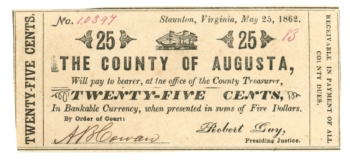 TWENTY-FIVE CENTS.
No. 10397 Staunton, Virginia, May 25, 1862.
25 25 13
THE COUNTY OF AUGUSTA,
Will pay to bearer, at the office of the County Treasurer,
TWENTY-FIVE CENTS,
In Bankable Currency, when presented in sums of Five Dollars.
By Order of Court:
Robert Guy,
Presiding Justice.
RECEIVABLE IN PAYMENT OF ALL
COUNTY DUES.